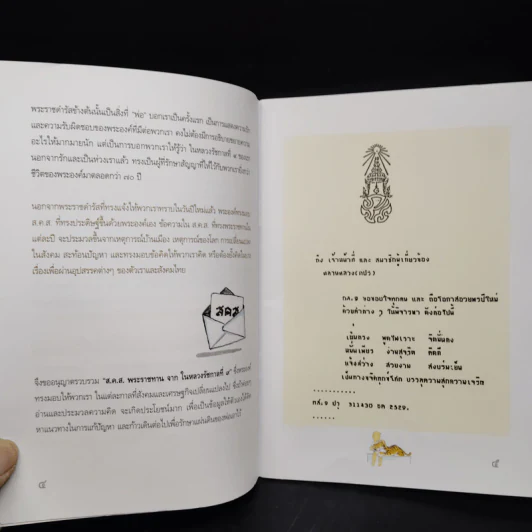 พระราชดำรัสข้างต้นนั้นเป็นสิ่งที่ "พ่อ" บอกเราเป็นครั้งแรก เป็นการแสดงความรัก
และความรับผิดชอบของพระองค์ที่มีต่อพวกเรา คงไม่ต้องมีการอธิบายขยายความ
อะไรให้มากมายนัก แต่เป็นการบอกพวกเราให้รู้ว่า ในหลวงรัชกาลที่ ๙ ของเรา
นอกจากรักและเป็นห่วงเราแล้ว ทรงเป็นผู้ที่รักษาสัญญาที่ให้ไว้กับพวกเรายิ่งกว่า
ชีวิตของพระองค์มาตลอดกว่า ๗๐ ปี
นอกจากพระราชดำรัสที่ทรงแจ้งให้พวกเราทราบในวันปีใหม่แล้ว พระองค์ทรงมอบ
ส.ค.ส. ที่ทรงประดิษฐ์ขึ้นด้วยพระองค์เอง ข้อความใน ส.ค.ส. ที่พระราชทานใน
แต่ละปี จะประมวลขึ้นจากเหตุการณ์บ้านเมือง เหตุการณ์ของโลก การเปลี่ยนแปลง
ในสังคม สะท้อนปัญหา และทรงมอบข้อคิดให้พวกเราคิด
เรื่องเพื่อผ่านอุปสรรคต่างๆ ของตัวเราและสังคมไทย
สคส
จึงขออนุญาตรวบรวม "ส.ค.ส. พระราชทาน จาก ในหลวงรัชกาลที่ ๙" ซึ่งพระองค์
ทรงมอบให้พวกเรา ในแต่ละกาลที่สังคมและเศรษฐกิจเปลี่ยนแปลงไป
อ่านและประมวลความคิด จะเกิดประโยชน์มาก เพื่อเป็นข้อมูลให้
หาแนวทางในการแก้ปัญหา และก้าวเดินต่อไปเพื่อรักษาแผ่นดินของพ่อเอาไว้
๔
ถึง เจ้าหน้าที่ และ สมาชิกผู้เกี่ยวข้อง
หลานหลวง(กปร)
กส.9 ขอขอบใจทุกคน และ ถือโอกาสอวยพรปีใหม่
ด้วยคำต่าง ๆ ในพิจารณา ดังต่อไปนี้
เข้มแรง พูดไพเราะ จิตมั่นคง
หมั่นเพียร งานสุจริต คิดดี
แจ้งสว่าง สวยงาม สงบร่มเย็น
กส.9 ปรุ 311430 ธค 2529.
๕